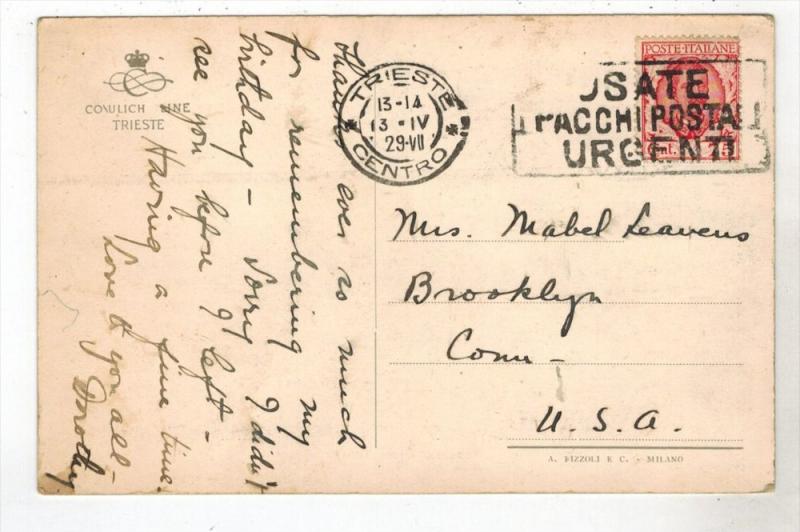 COSULICH LINE
TRIESTE
Thanks ever so much
for remembering my
birthday - Sorry I didn't
see you before I left -
Having a fine time.
Love to you all -
Dorothy
TRIESTE
13-14
3 - IV
29-VII
* CENTRO *
USATE
I PACCHI POSTALI
URGENTI
POSTE·ITALIANE
Cent. 75
Mrs. Mabel Leavens
Brooklyn
Conn -
U. S. A.
A. RIZZOLI E C. - MILANO